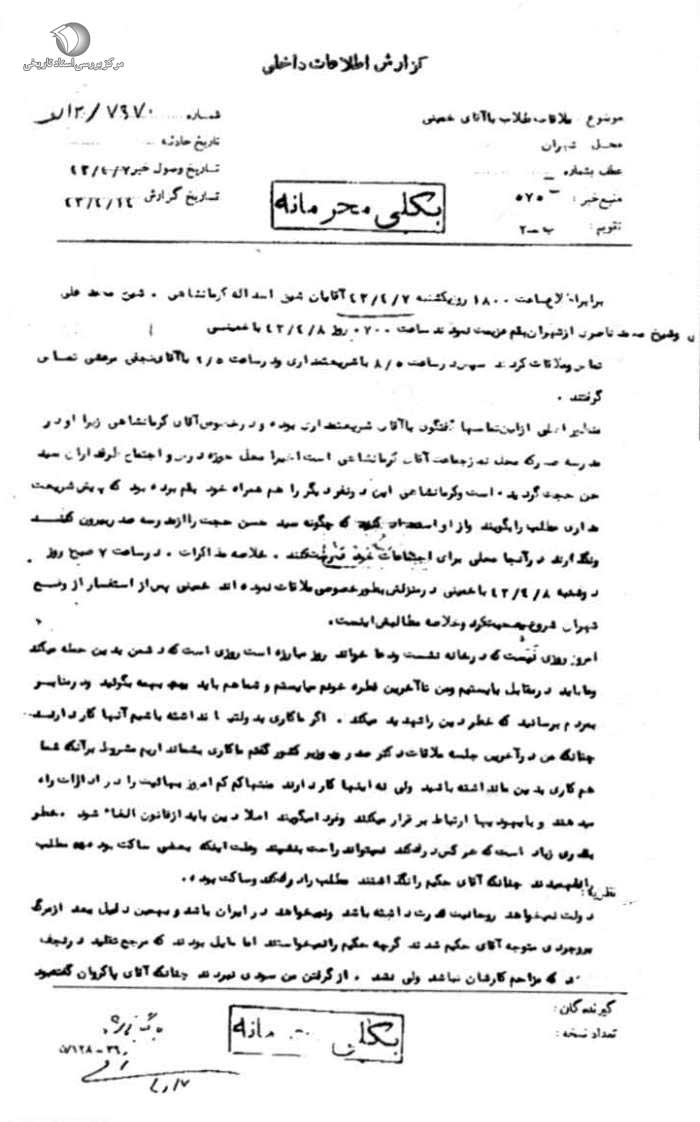 مرکز بررسی اسناد تاریخی
گزارش اطلاعات داخلی
موضوع ملاقات طلاب با آقای خمینی
محل تهران
عطف بشماره
منبع خبر : ۵۷۵
تقویم : ب – ۲
شماره ۷۹۷۰ / ۳۱۲
تاریخ حادثه
تاریخ وصول خبر ۴۳/۴/۷
تاریخ گزارش ۴۳/۴/۱۴
بکلی محرمانه
برابر اطلاع ساعت ۱۸۰۰ روز یکشنبه ۴۳/۴/۷ آقایان شیخ اسداله کرمانشاهی . شیخ محمد علی
و شیخ محمد ناصری از تهران بقم عزیمت نمودند ساعت ۰۷۰۰ روز ۴۳/۴/۸ با خمینی
تماس و ملاقات کردند سپس در ساعت ۸/۵ با شریعتمداری و در ساعت ۹/۵ با آقای نجفی مرعشی تماس
گرفتند .
منظور اصلی از این تماسها گفتگوی با آقای شریعتمداری بوده و در خصوص آقای کرمانشاهی زیرا او در
مدرسه صدر که محل نماز جماعت آقای کرمانشاهی است اخیرا محل حوزه درس و اجتماع طرفداران سید
حسن حجت گردیده است و کرمانشاهی این دو نفر دیگر را هم همراه خود بقم برده بود که پیش شریعت
مداری مطلب را بگویند و از او استمداد که چگونه سید حسن حجت را از مدرسه صدر بیرون کنند
و نگذارند در آنجا محلی برای اجتماعات خود درست کنند . خلاصه مذاکرات . در ساعت ۷ صبح روز
دوشنبه ۴۳/۴/۸ با خمینی در منزلش بطور خصوصی ملاقات نموده اند خمینی پس از استفسار از وضع
تهران شروع بصحبت کرد و خلاصه مطالبش اینست .
امروز روزی نیست که در خانه نشست و دعا خواند روز مبارزه است روزی است که دشمن بدین حمله میکند
و ما باید در مقابل بایستیم و من تا آخرین قطره خونم میایستم و شما هم باید بهمه بگوئید و در منابر
بمردم برسانید که خطر دین را تهدید میکند . اگر ما کاری بدولتی ها نداشته باشیم آنها کار دارند
چنانکه من در آخرین جلسه ملاقات دکتر صدر وزیر کشور گفتم ما کاری بشما نداریم مشروط بر آنکه شما
هم کاری بدین ما نداشته باشید ولی نه اینها کار دارند منتها کم کم امروز بهائیت را در ادارات راه
میدهند و با یهودیها ارتباط بر قرار میکنند و فردا میگویند اصلا دین باید از قانون الغاء شود . خطر
بقدری زیاد است که هر کس درک کند نمیتواند راحت بنشیند و علت اینکه بعضی ساکت بودند مطلب
را نفهمیدند چنانکه آقای حکیم را نگذاشتند مطلب را درک کند و ساکت بود .
نظریه :
دولت نمیخواهد روحانیت قدرت داشته باشد و نمیخواهد در ایران باشد و بهمین دلیل بعد از مرگ
بروجردی متوجه آقای حکیم شدند گرچه حکیم را نمیخواستند اما مایل بودند که مرجع تقلید در نجف
که مزاحم کارشان نباشد ولی نشد . از گرفتن من سودی نبردند چنانکه آقای پاکروان گفته بود
گیرندگان :
تعداد نسخه :
بکلی محرمانه